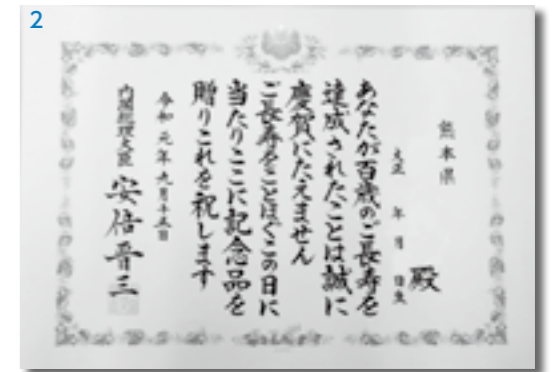 2
熊本県
殿
大正 年 月 日生
あなたが百歳のご長寿を
達成されたことは誠に
慶賀にたえません
ご長寿をことほぐこの日に
当たりここに記念品を
贈りこれを祝します
令和元年九月十五日
内閣総理大臣 安倍晋三